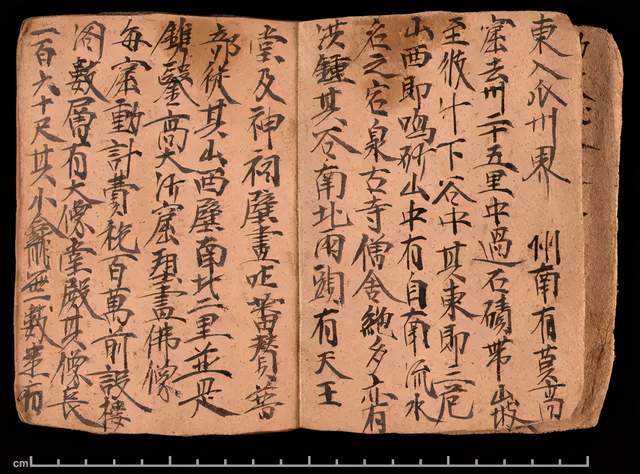 東入瓜州界　州南有莫高
窟去州二十五里中過石磧帶山坡
至彼斗下谷中其東即三危
山西即鳴砂山中有自南流水
名之宕泉古寺僧舍絶多亦有
洪鍾其谷南北兩頭有天王
堂及神祠壁畫吐蕃贊普
部從其山西壁南北二里並是
鐫鑿高大沙窟塑畫佛像
每窟動計費税百萬前設樓
閣數層有大像堂殿其像長
一百六十尺其小龕無數悉有
cm